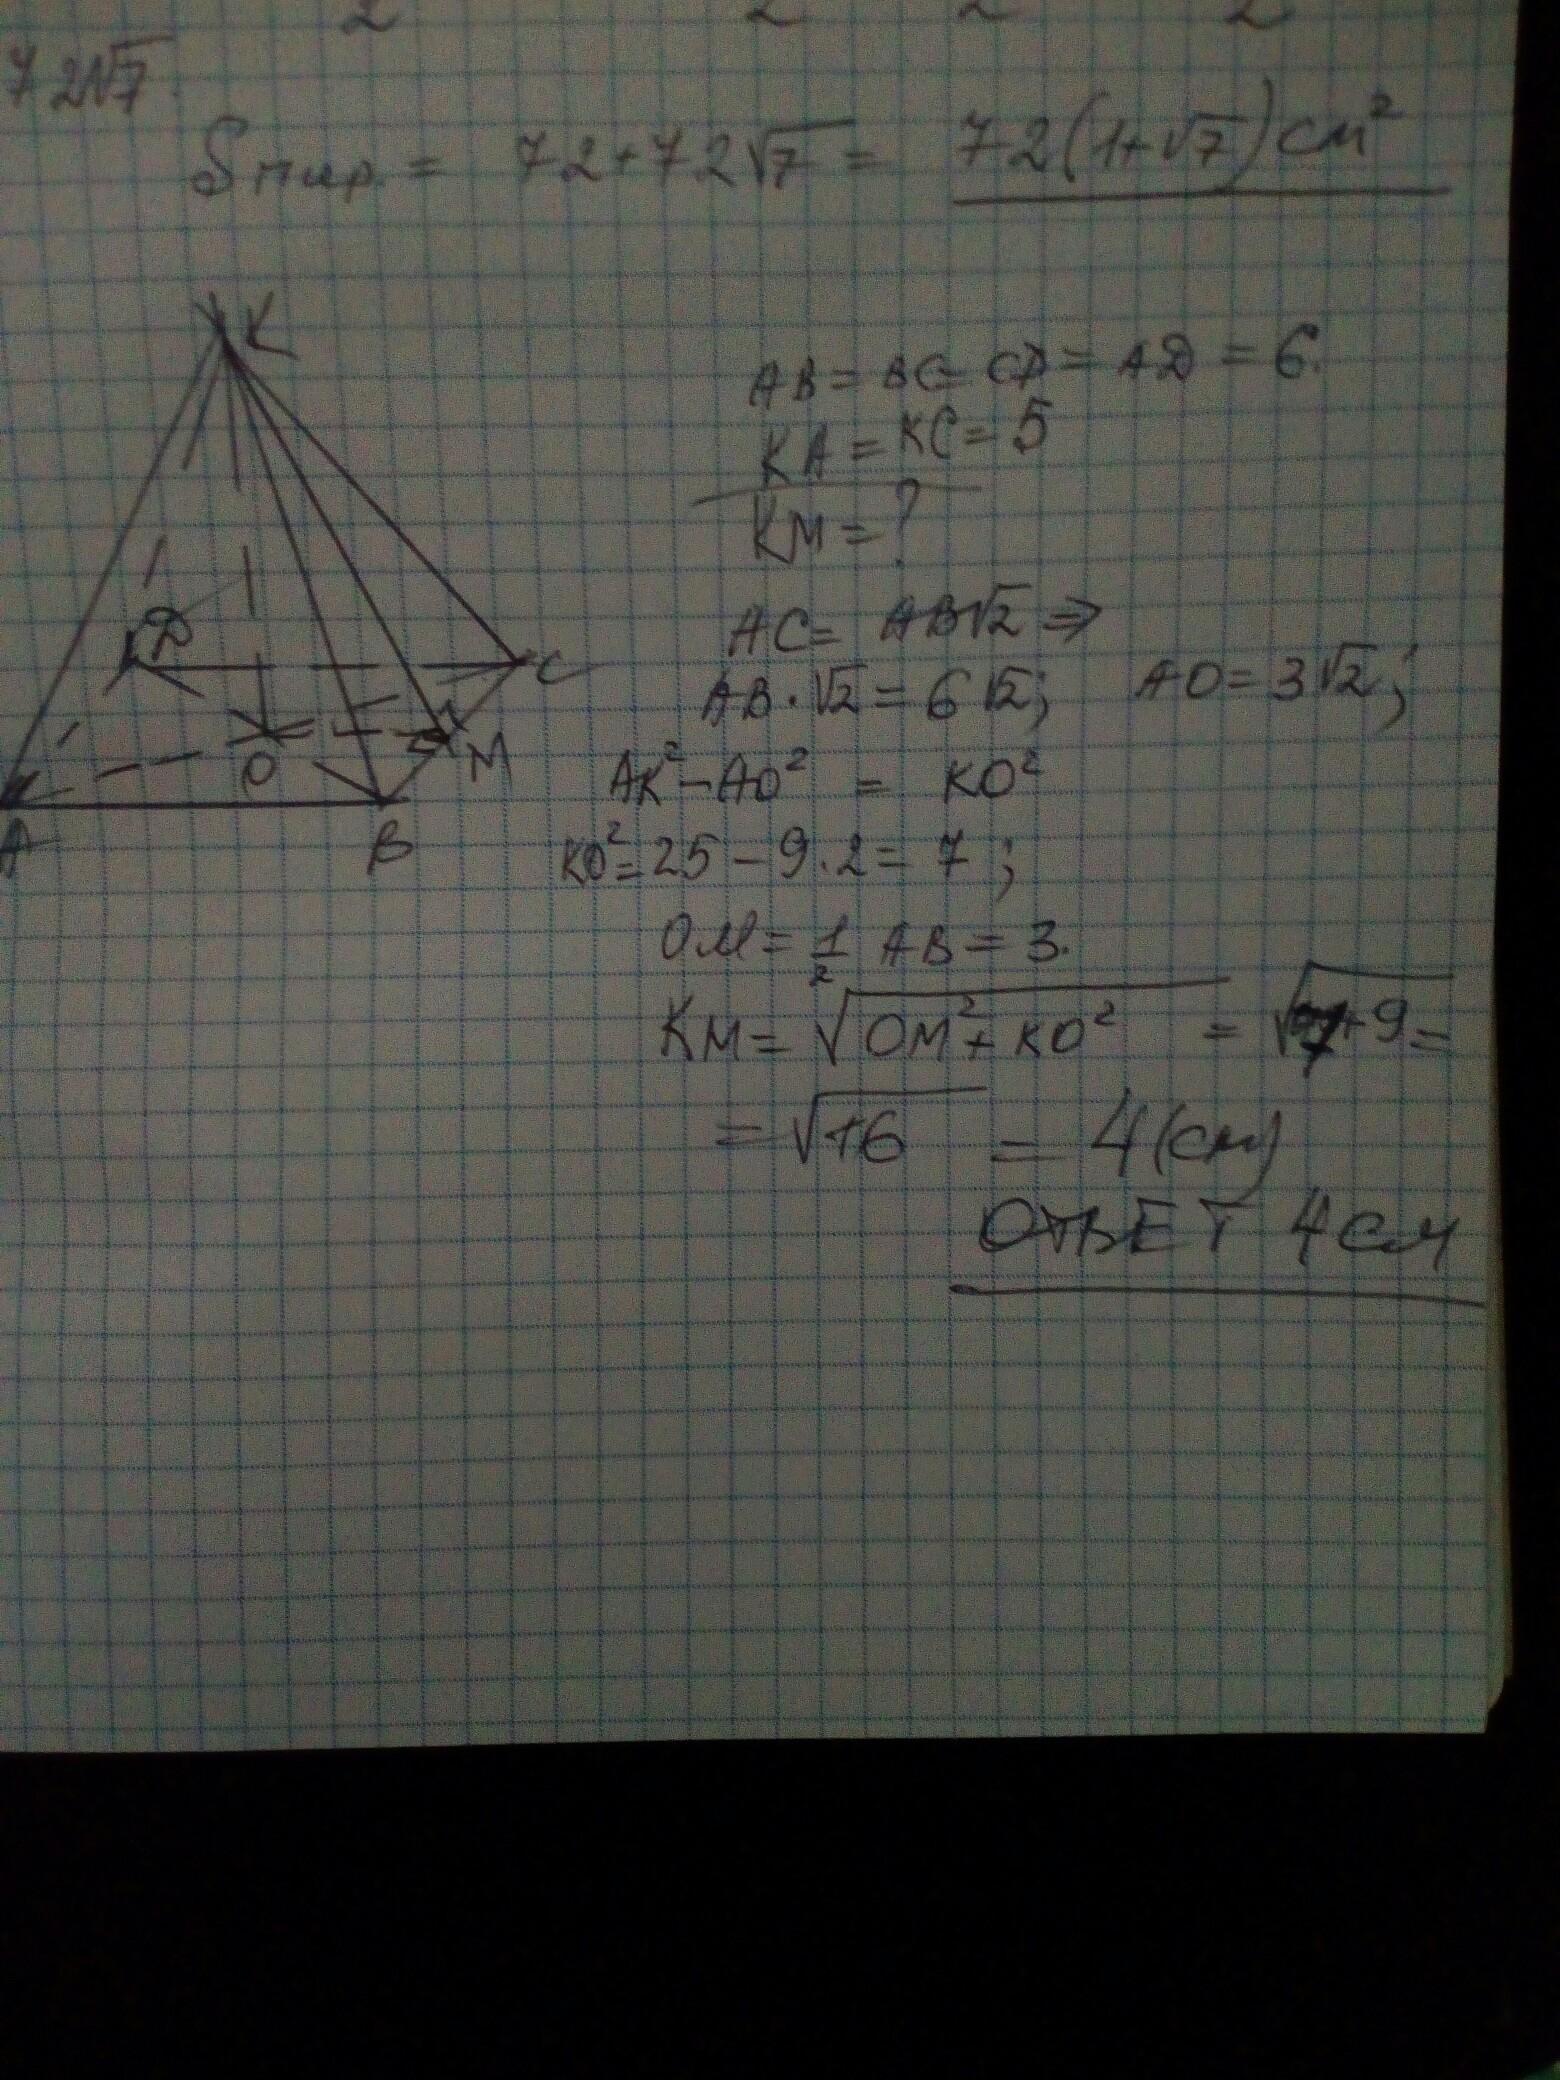 2 2 2 2
72√7.
Sпир. = 72+72√7 = 72(1+√7)см²
K
D
C
O
M
A
B
AB = BC = CD = AD = 6.
KA = KC = 5
KM = ?
AC = AB√2 ⇒
AB·√2 = 6√2; AO = 3√2;
AK² – AO² = KO²
KO² = 25 – 9·2 = 7;
OM = 1/2 AB = 3.
KM = √OM² + KO² = √7+9 =
= √16 = 4 (см)
ОТВЕТ 4 см